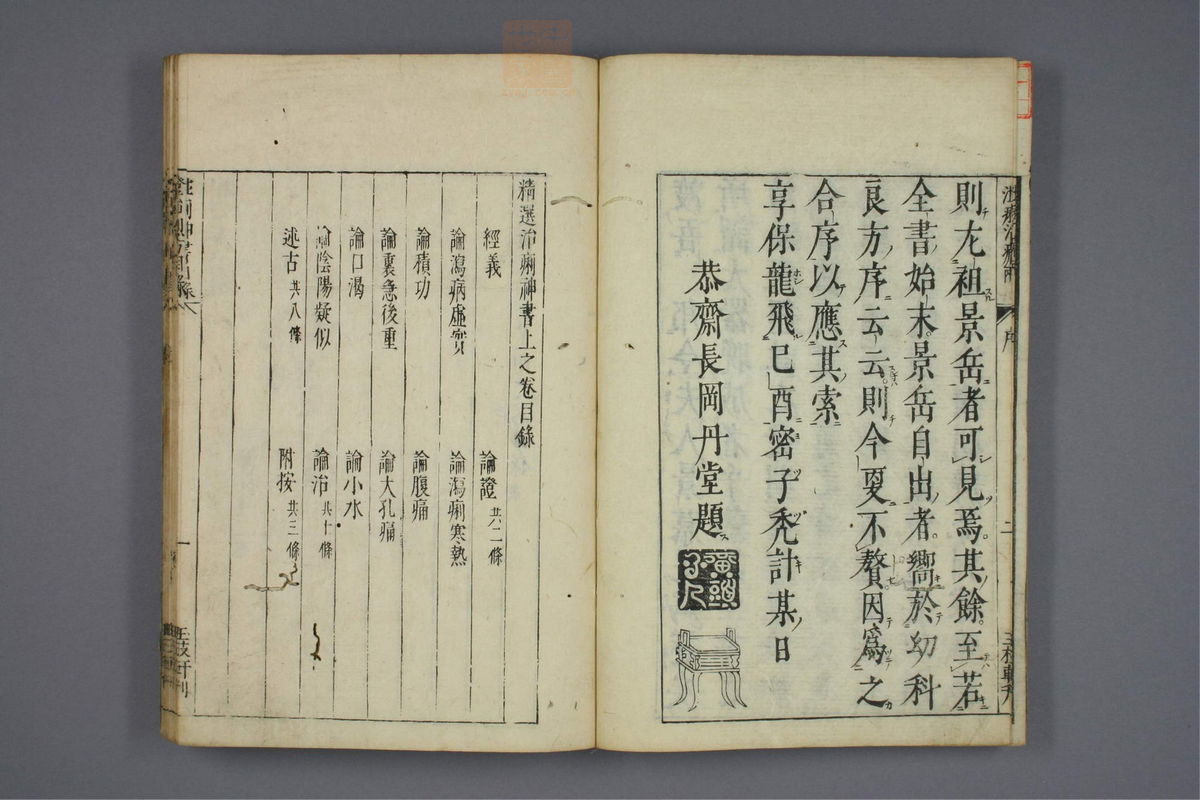 則尢祖景岳者可見焉其餘至若
全書始末景岳自出者嚮於幼科
良方序云云則今更不贅因爲之
合序以應其索
享保龍飛巳酉密子禿計某日
恭齋長岡丹堂題
精選治痢神書上之卷目錄
經義 論證共二條
論瀉病虛實 論瀉痢寒熱
論積功 論腹痛
論裏急後重 論大孔痛
論口渴 論小水
論陰陽疑似 論治共十條
述古共八條 附按共三條